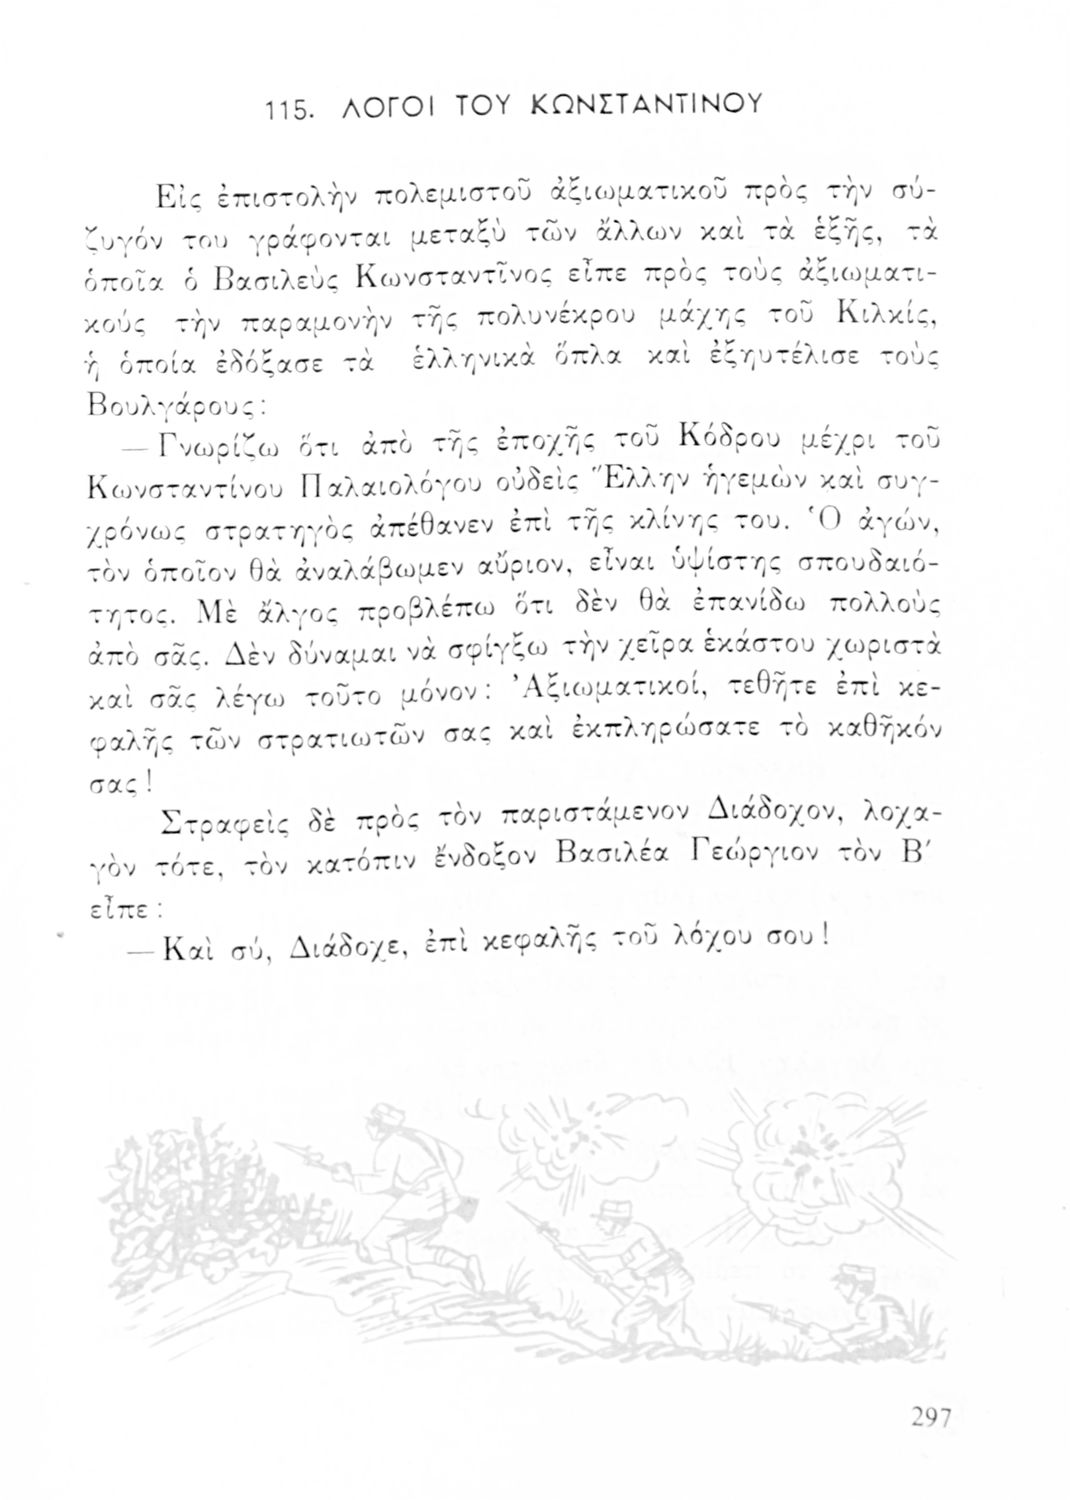 115. ΛΟΓΟΙ ΤΟΥ ΚΩΝΣΤΑΝΤΙΝΟΥ
Εἰς ἐπιστολὴν πολεμιστοῦ ἀξιωματικοῦ πρὸς τὴν σύ-
ζυγόν του γράφονται μεταξὺ τῶν ἄλλων καὶ τὰ ἑξῆς, τὰ
ὁποῖα ὁ Βασιλεὺς Κωνσταντῖνος εἶπε πρὸς τοὺς ἀξιωματι-
κούς τὴν παραμονὴν τῆς πολυνέκρου μάχης τοῦ Κιλκίς,
ἡ ὁποία ἐδόξασε τὰ ἑλληνικὰ ὅπλα καὶ ἐξηυτέλισε τοὺς
Βουλγάρους:
— Γνωρίζω ὅτι ἀπὸ τῆς ἐποχῆς τοῦ Κόδρου μέχρι τοῦ
Κωνσταντίνου Παλαιολόγου οὐδεὶς Ἕλλην ἡγεμὼν καὶ συγ-
χρόνως στρατηγὸς ἀπέθανεν ἐπὶ τῆς κλίνης του. Ὁ ἀγών,
τὸν ὁποῖον θὰ ἀναλάβωμεν αὔριον, εἶναι ὑψίστης σπουδαιό-
τητος. Μὲ ἄλγος προβλέπω ὅτι δὲν θὰ ἐπανίδω πολλοὺς
ἀπὸ σᾶς. Δὲν δύναμαι νὰ σφίγξω τὴν χεῖρα ἑκάστου χωριστὰ
καὶ σᾶς λέγω τοῦτο μόνον: Ἀξιωματικοί, τεθῆτε ἐπὶ κε-
φαλῆς τῶν στρατιωτῶν σας καὶ ἐκπληρώσατε τὸ καθῆκόν
σας!
Στραφεὶς δὲ πρὸς τὸν παριστάμενον Διάδοχον, λοχα-
γὸν τότε, τὸν κατόπιν ἔνδοξον Βασιλέα Γεώργιον τὸν Β′
εἶπε:
— Καὶ σύ, Διάδοχε, ἐπὶ κεφαλῆς τοῦ λόχου σου!
297